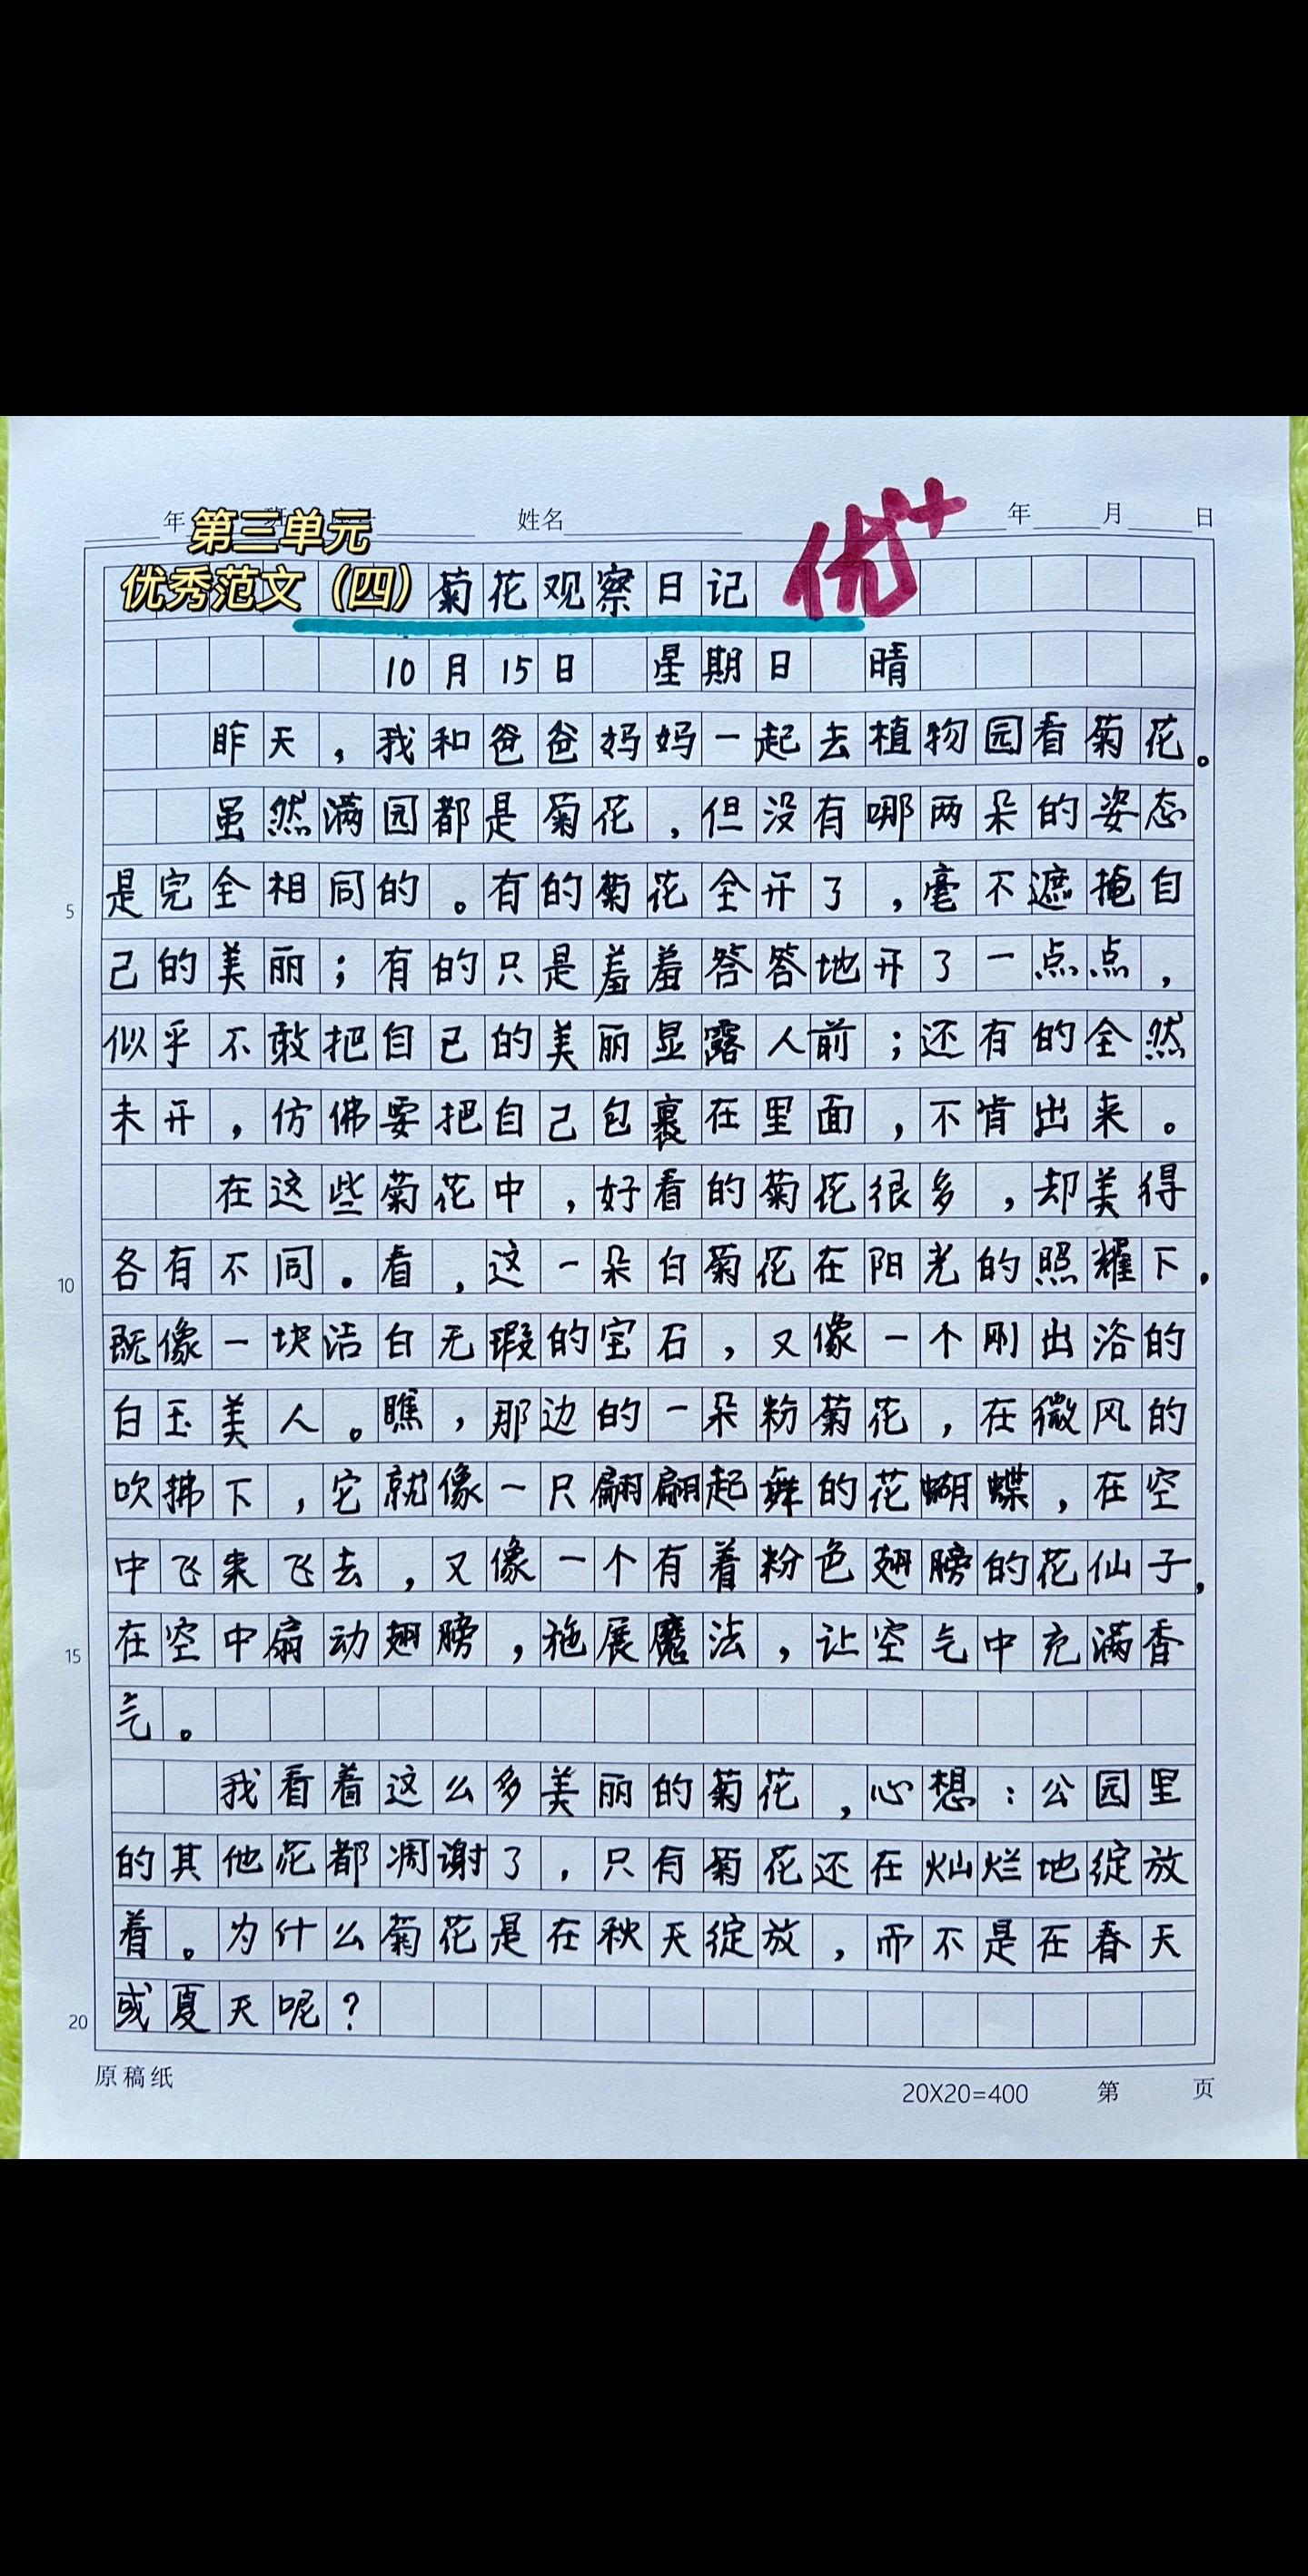 年 班 姓名 年 月 日
第三单元
优秀范文（四）
菊花观察日记
优++
10月15日 星期日 晴
昨天，我和爸爸妈妈一起去植物园看菊花。
虽然满园都是菊花，但没有哪两朵的姿态
是完全相同的。有的菊花全开了，毫不遮掩自
己的美丽；有的只是羞羞答答地开了一点点，
似乎不敢把自己的美丽显露人前；还有的全然
未开，仿佛要把自己包裹在里面，不肯出来。
在这些菊花中，好看的菊花很多，却美得
各有不同。看，这一朵白菊花在阳光的照耀下，
既像一块洁白无瑕的宝石，又像一个刚出浴的
白玉美人。瞧，那边的一朵粉菊花，在微风的
吹拂下，它就像一只翩翩起舞的花蝴蝶，在空
中飞来飞去，又像一个有着粉色翅膀的花仙子，
在空中扇动翅膀，施展魔法，让空气中充满香
气。
我看着这么多美丽的菊花，心想：公园里
的其他花都凋谢了，只有菊花还在灿烂地绽放
着。为什么菊花是在秋天绽放，而不是在春天
或夏天呢？
5
10
15
20
原稿纸
20X20=400 第 页